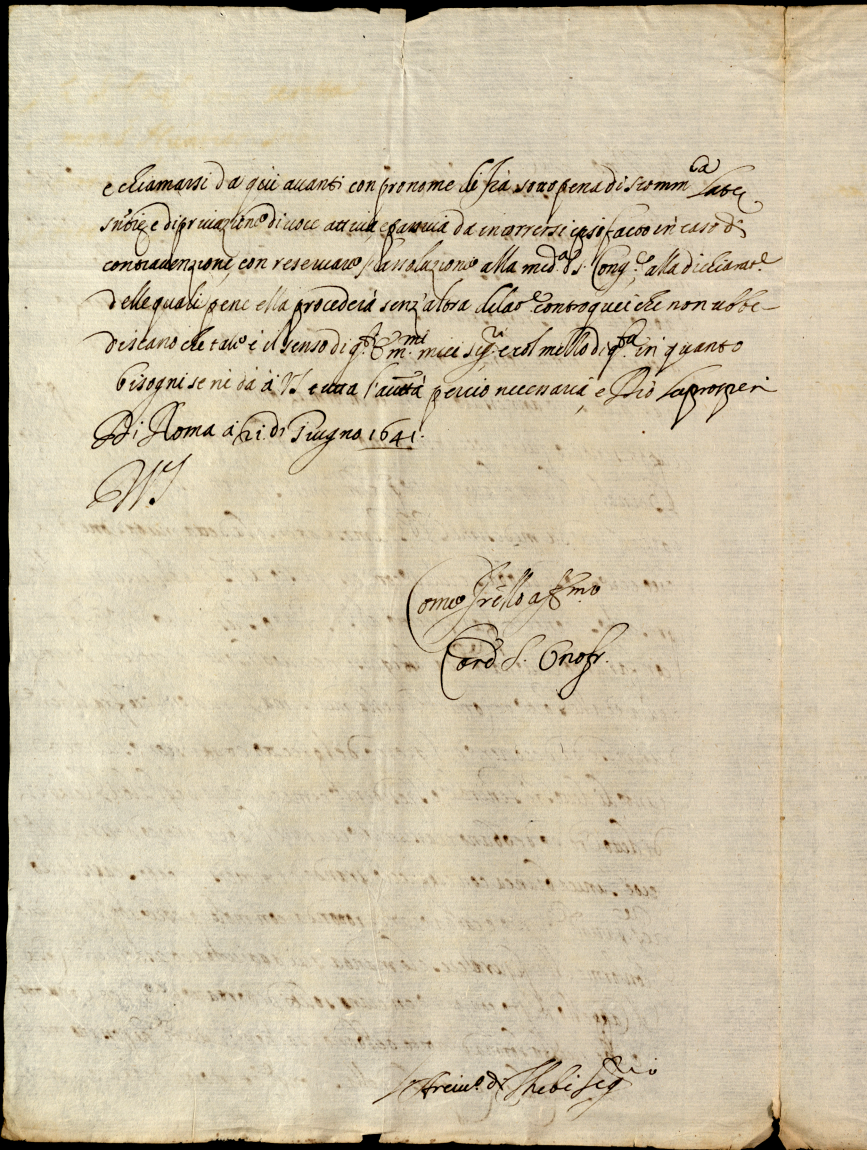 e chiamarsi da qui avanti con pronome di fra sotto pena di scomm.ca latæ
sn̄tiæ e di privatione di voce attiva, e passiva da incorrersi ipso facto in caso di
contravenzione, con reservare l'assolutione alla med.a S. Cong.ne, alla dichiarat.e
delle quali pene ella procederà senz'altra dilat.e contro quei che non ubbe-
discano che tale è il senso di q.ti E.mi miei sig.ri e col mezzo di q.ta in quanto
bisogni se ne dà à V.S. tutta l'autt.tà perciò necessaria, e Dio la prosperi
Di Roma à 21 di Giugno 1641.
V.S.
Come fr̄ello aff.mo
Card. S. Onofr.
Arciv.o di Thebe Seg.rio